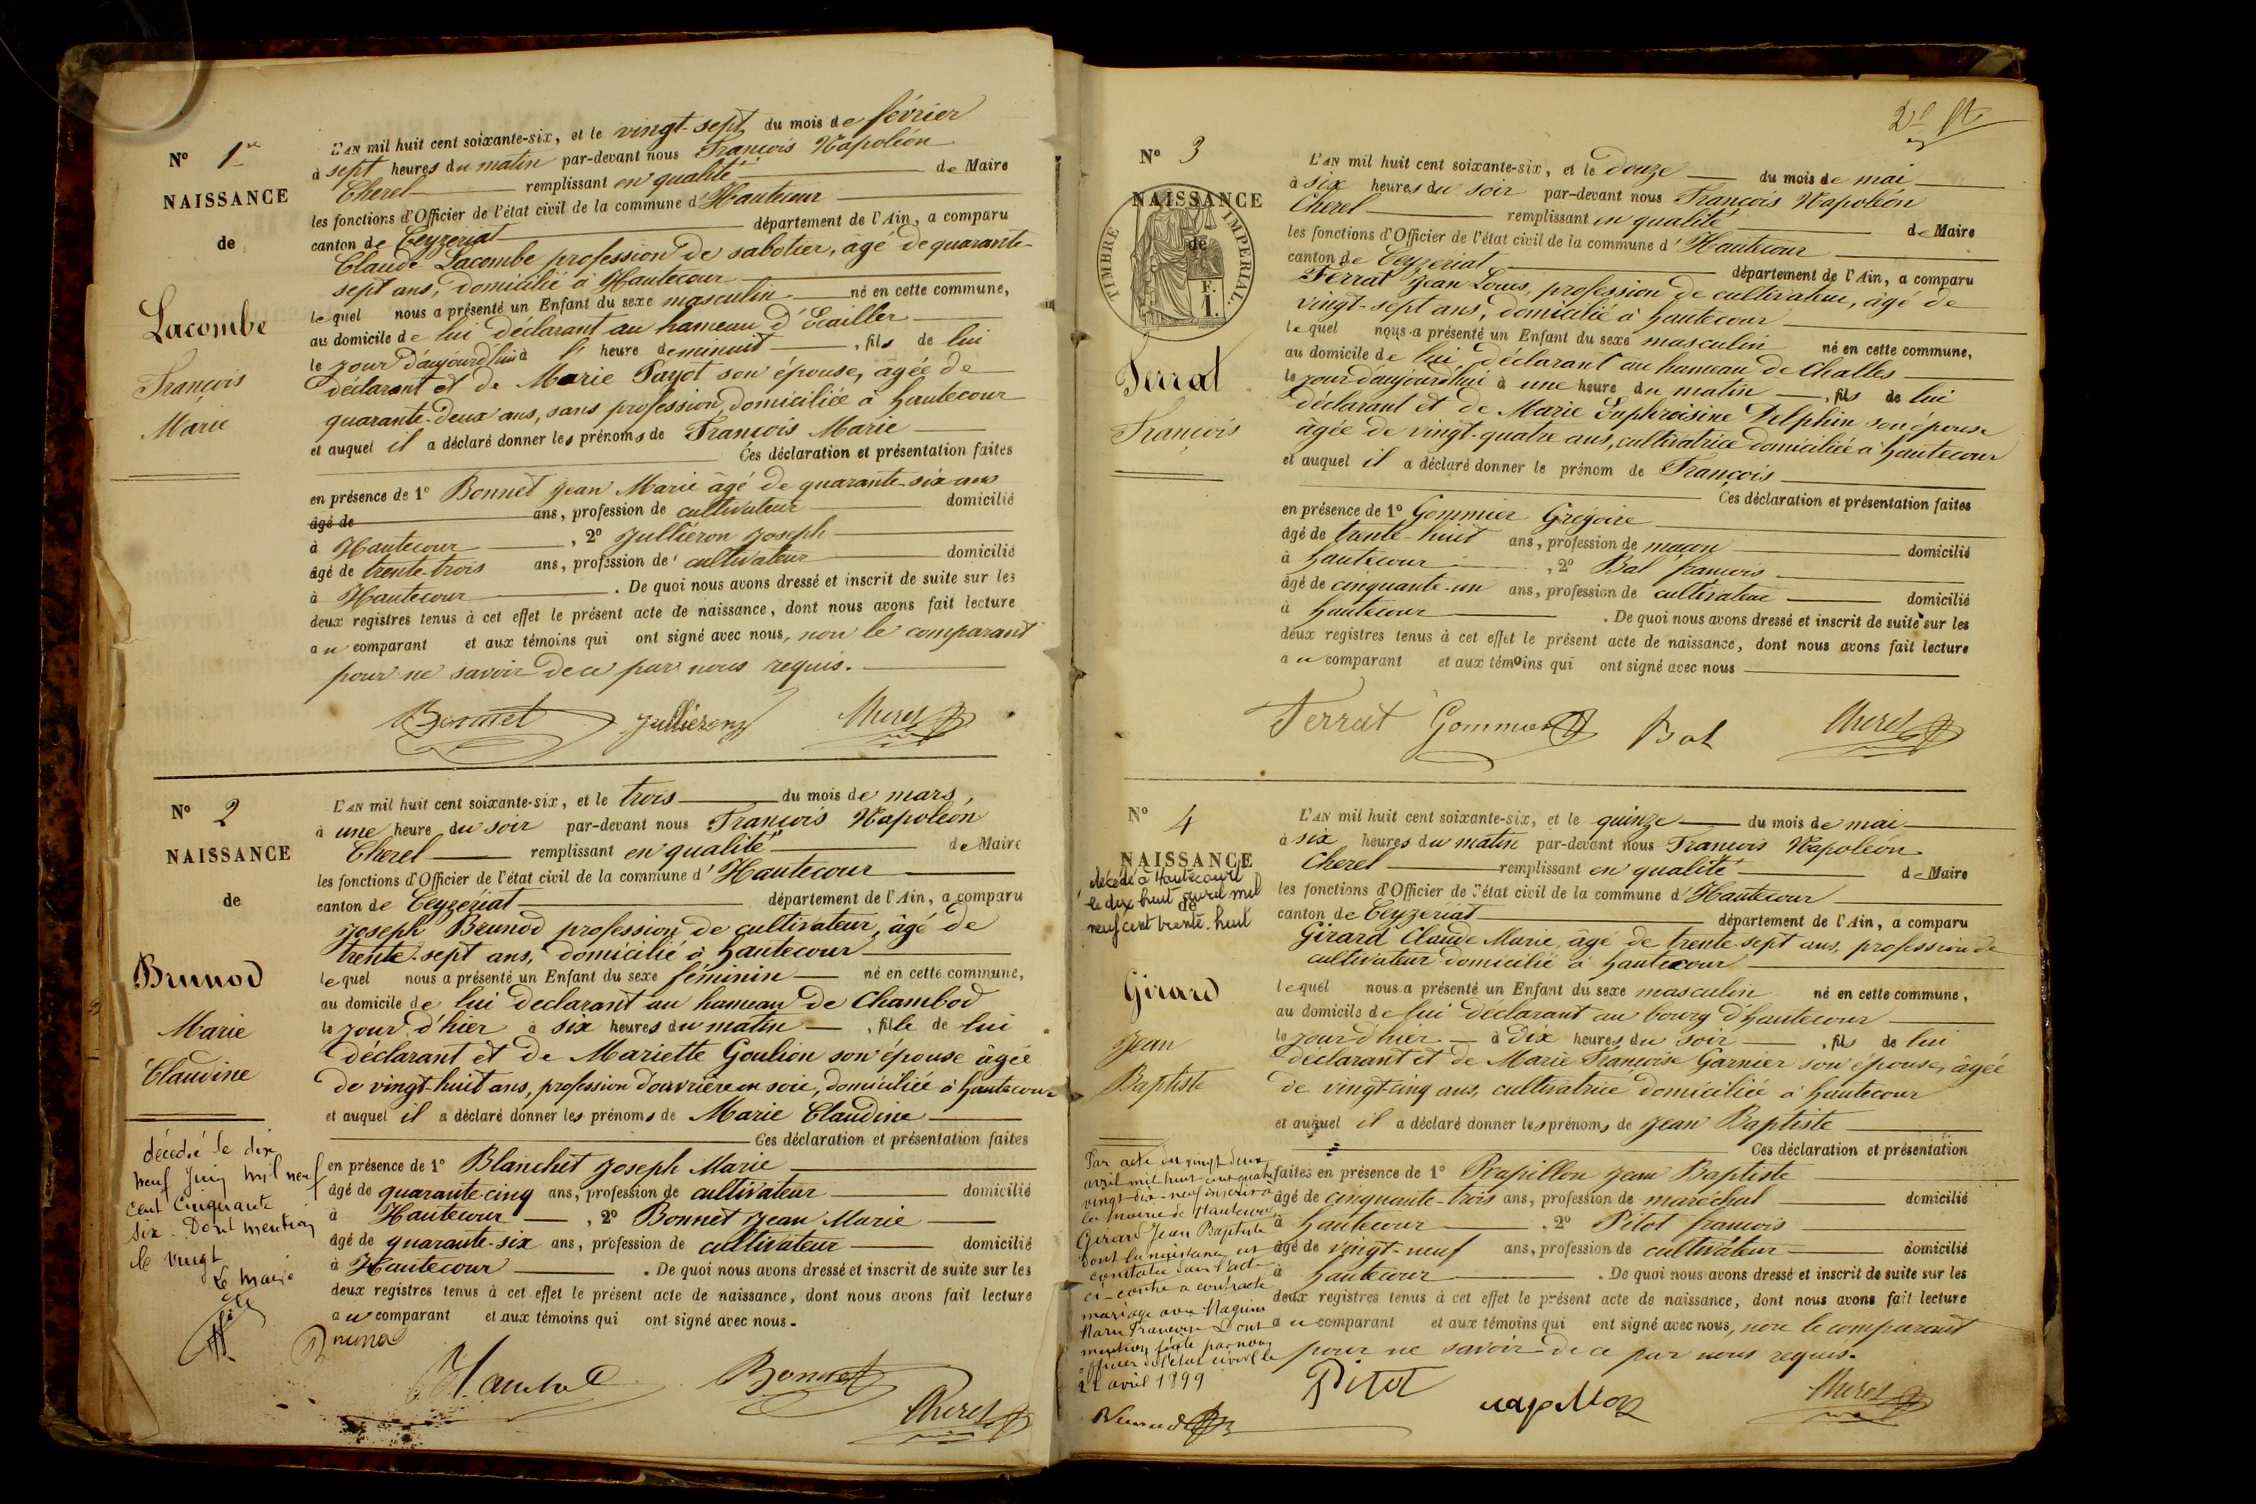 No 1er
NAISSANCE
de
Lacombe
François
Marie
L'AN mil huit cent soixante-six, et le vingt-sept du mois de février
à sept heures du matin par-devant nous François Napoléon
Cherel remplissant en qualité de Maire
les fonctions d'Officier de l'état civil de la commune d'Hautecour
canton de Ceyzeriat département de l'Ain, a comparu
Claude Lacombe profession de sabotier, âgé de quarante-
sept ans, domicilié à Hautecour
lequel nous a présenté un Enfant du sexe masculin né en cette commune,
au domicile de lui déclarant au hameau d'Ecailler
le jour d'aujourd'hui à l' heure de minuit, fils de lui
déclarant et de Marie Payot son épouse, âgée de
quarante-deux ans, sans profession, domiciliée à hautecour
et auquel il a déclaré donner les prénoms de François Marie
Ces déclaration et présentation faites
en présence de 1° Bonnet Jean Marie âgé de quarante-six ans
âgé de ans, profession de cultivateur domicilié
à Hautecour, 2° Jullieron Joseph
âgé de trente-trois ans, profession de cultivateur domicilié
à Hautecour. De quoi nous avons dressé et inscrit de suite sur les
deux registres tenus à cet effet le présent acte de naissance, dont nous avons fait lecture
au comparant et aux témoins qui ont signé avec nous, non le comparant
pour ne savoir de ce par nous requis.
Bonnet Jullieron Cherel
No 2
NAISSANCE
de
Brunod
Marie
Claudine
décédé le dix
neuf Juin mil neuf
cent cinquante
six. Dont mention
le vingt
Le maire
L'AN mil huit cent soixante-six, et le trois du mois de mars,
à une heure du soir par-devant nous François Napoléon
Cherel remplissant en qualité de Maire
les fonctions d'Officier de l'état civil de la commune d'Hautecour
canton de Ceyzeriat département de l'Ain, a comparu
Joseph Brunod profession de cultivateur, âgé de
trente-sept ans, domicilié à hautecour
lequel nous a présenté un Enfant du sexe féminin né en cette commune,
au domicile de lui declarant au hameau de Chambod
le jour d'hier à six heures du matin, fille de lui
déclarant et de Mariette Goulion son épouse âgée
de vingt-huit ans, profession d'ouvrière en soie, domiciliée à hautecour
et auquel il a déclaré donner les prénoms de Marie Claudine
Ces déclaration et présentation faites
en présence de 1° Blanchet Joseph Marie
âgé de quarante-cinq ans, profession de cultivateur domicilié
à Hautecour, 2° Bonnet Jean Marie
âgé de quarante-six ans, profession de cultivateur domicilié
à Hautecour. De quoi nous avons dressé et inscrit de suite sur les
deux registres tenus à cet effet le présent acte de naissance, dont nous avons fait lecture
au comparant et aux témoins qui ont signé avec nous.
Brunod
Bonnet
Cherel
No 3
NAISSANCE
de
TIMBRE IMPERIAL.
F.
1.
Ferrat
François
L'AN mil huit cent soixante-six, et le douze du mois de mai
à six heures du soir par-devant nous François Napoléon
Cherel remplissant en qualité de Maire
les fonctions d'Officier de l'état civil de la commune d'Hautecour
canton de Ceyzeriat département de l'Ain, a comparu
Ferrat Jean Louis, profession de cultivateur, âgé de
vingt-sept ans, domicilié à hautecour
lequel nous a présenté un Enfant du sexe masculin né en cette commune,
au domicile de lui déclarant au hameau de Challes
le jour d'aujourd'hui à une heure du matin, fils de lui
déclarant et de Marie Euphroisine Delphin son épouse
âgée de vingt-quatre ans, cultivatrice domiciliée à hautecour
et auquel il a déclaré donner le prénom de François
Ces déclaration et présentation faites
en présence de 1° Gommier Grégoire
âgé de trente-huit ans, profession de maçon domicilié
à hautecour, 2° Bal francois
âgé de cinquante-un ans, profession de cultivateur domicilié
à hautecour. De quoi nous avons dressé et inscrit de suite sur les
deux registres tenus à cet effet le présent acte de naissance, dont nous avons fait lecture
au comparant et aux témoins qui ont signé avec nous
Ferrat Gommier Bal Cherel
No 4
NAISSANCE
de
décédé à Hautecour
le dix huit avril mil
neuf cent trente-huit
Girard
Jean
Baptiste
Par acte du vingt deux
avril mil huit cent quatre
vingt-dix-neuf inscrit à
la mairie de Hautecour
Girard Jean Baptiste
dont la naissance est
constatée dans l'acte
ci-contre a contracté
mariage avec Maquin
Marie Françoise Dont
mention faite par nous
officier de l'état civil le
22 avril 1899
Brunod
L'AN mil huit cent soixante-six, et le quinze du mois de mai
à six heures du matin par-devant nous François Napoléon
Cherel remplissant en qualité de Maire
les fonctions d'Officier de l'état civil de la commune d'Hautecour
canton de Ceyzeriat département de l'Ain, a comparu
Girard Claude Marie, âgé de trente sept ans, profession de
cultivateur domicilié à hautecour
lequel nous a présenté un Enfant du sexe masculin né en cette commune,
au domicile de lui déclarant au bourg d'hautecour
le jour d'hier à dix heures du soir, fils de lui
déclarant et de Marie Françoise Garnier son épouse, âgée
de vingt-cinq ans, cultivatrice domiciliée à hautecour
et auquel il a déclaré donner les prénoms de Jean Baptiste
Ces déclaration et présentation
faites en présence de 1° Rapillon Jean Baptiste
âgé de cinquante-trois ans, profession de maréchal domicilié
à hautecour, 2° Pitot francois
âgé de vingt-neuf ans, profession de cultivateur domicilié
à hautecour. De quoi nous avons dressé et inscrit de suite sur les
deux registres tenus à cet effet le présent acte de naissance, dont nous avons fait lecture
au comparant et aux témoins qui ont signé avec nous, non le comparant
pour ne savoir de ce par nous requis.
Pitot rapillon Cherel